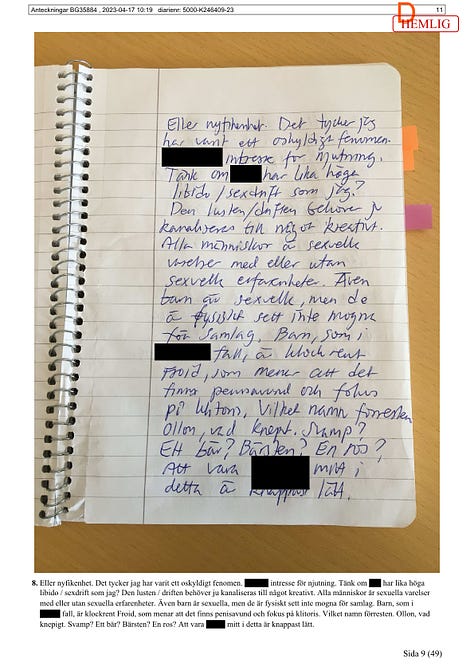 Anteckningar BG35884 , 2023-04-17 10:19 diarienr: 5000-K246409-23
11
D
HEMLIG
Eller nyfikenhet. Det tycker jag
har varit ett oskyldigt fenomen.
intresse för njutning.
Tänk om har lika höga
libido / sexdrift som jag?
Den lusten/driften behöver ju
kanaliseras till något kreativt.
Alla människor är sexuella
varelser med eller utan
sexuella erfarenheter. Även
barn är sexuella, men de
är fysiskt sett inte mogna
för samlag. Barn, som i
fall, är klockrent
Froid, som menar att det
finns penisavund och fokus
på klitoris. Vilket namn förresten
Ollon, vad knepigt. Svamp?
Ett bär? Bärsten? En ros?
Att vara mitt i
detta är knappast lätt.
8. Eller nyfikenhet. Det tycker jag har varit ett oskyldigt fenomen. intresse för njutning. Tänk om har lika höga
libido / sexdrift som jag? Den lusten / driften behöver ju kanaliseras till något kreativt. Alla människor är sexuella varelser
med eller utan sexuella erfarenheter. Även barn är sexuella, men de är fysiskt sett inte mogna för samlag. Barn, som i
fall, är klockrent Froid, som menar att det finns penisavund och fokus på klitoris. Vilket namn förresten. Ollon, vad
knepigt. Svamp? Ett bär? Bärsten? En ros? Att vara mitt i detta är knappast lätt.
Sida 9 (49)